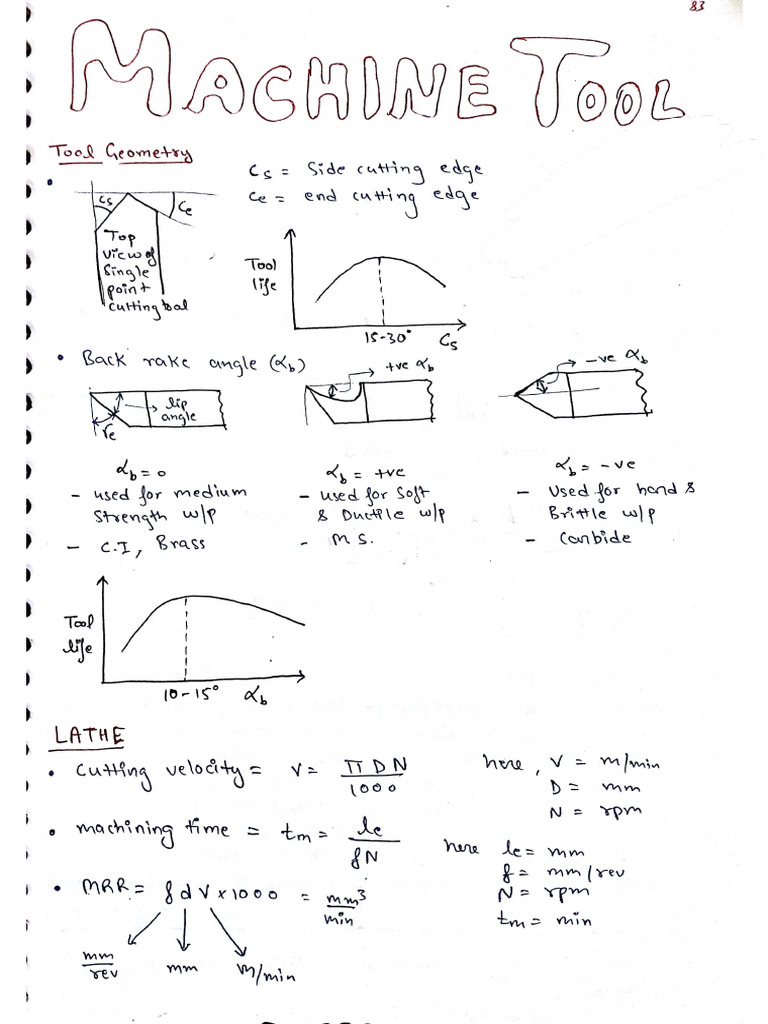 83
MACHINE TOOL
Tool Geometry
Cs = Side cutting edge
Ce = end cutting edge
Cs
Ce
Top
view of
Single
point
Cutting tool
Tool
life
15-30°
Cs
• Back rake angle (αb)
+ve αb
-ve αb
lip
angle
re
αb = 0
- used for medium
Strength w/p
- C.I, Brass
αb = +ve
- used for Soft
& Ductile w/p
- M S.
αb = -ve
- Used for hard &
Brittle w/p
- Carbide
Tool
life
10-15°
αb
LATHE
• Cutting velocity = V = ΠDN/1000
here, V = m/min
D = mm
N = rpm
• machining time = tm = le/fN
here le = mm
f = mm/rev
N = rpm
tm = min
• MRR = f d V × 1000 = mm³/min
mm/rev
mm
m/min